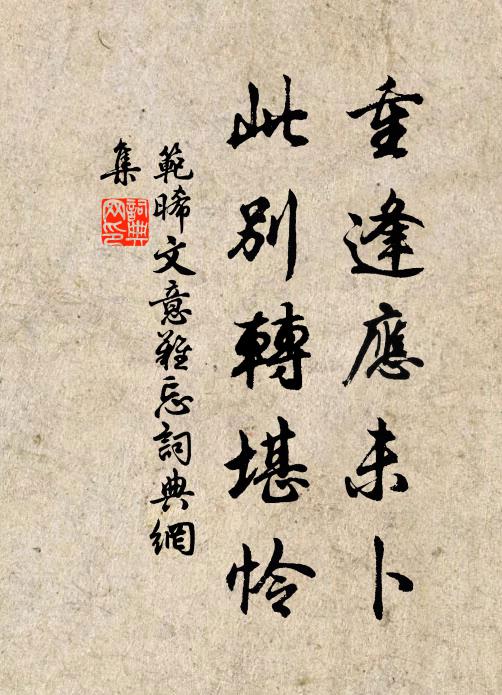 重逢應未卜
此別轉堪憐
範晞文意難忘詞典網
集
詞典
网印